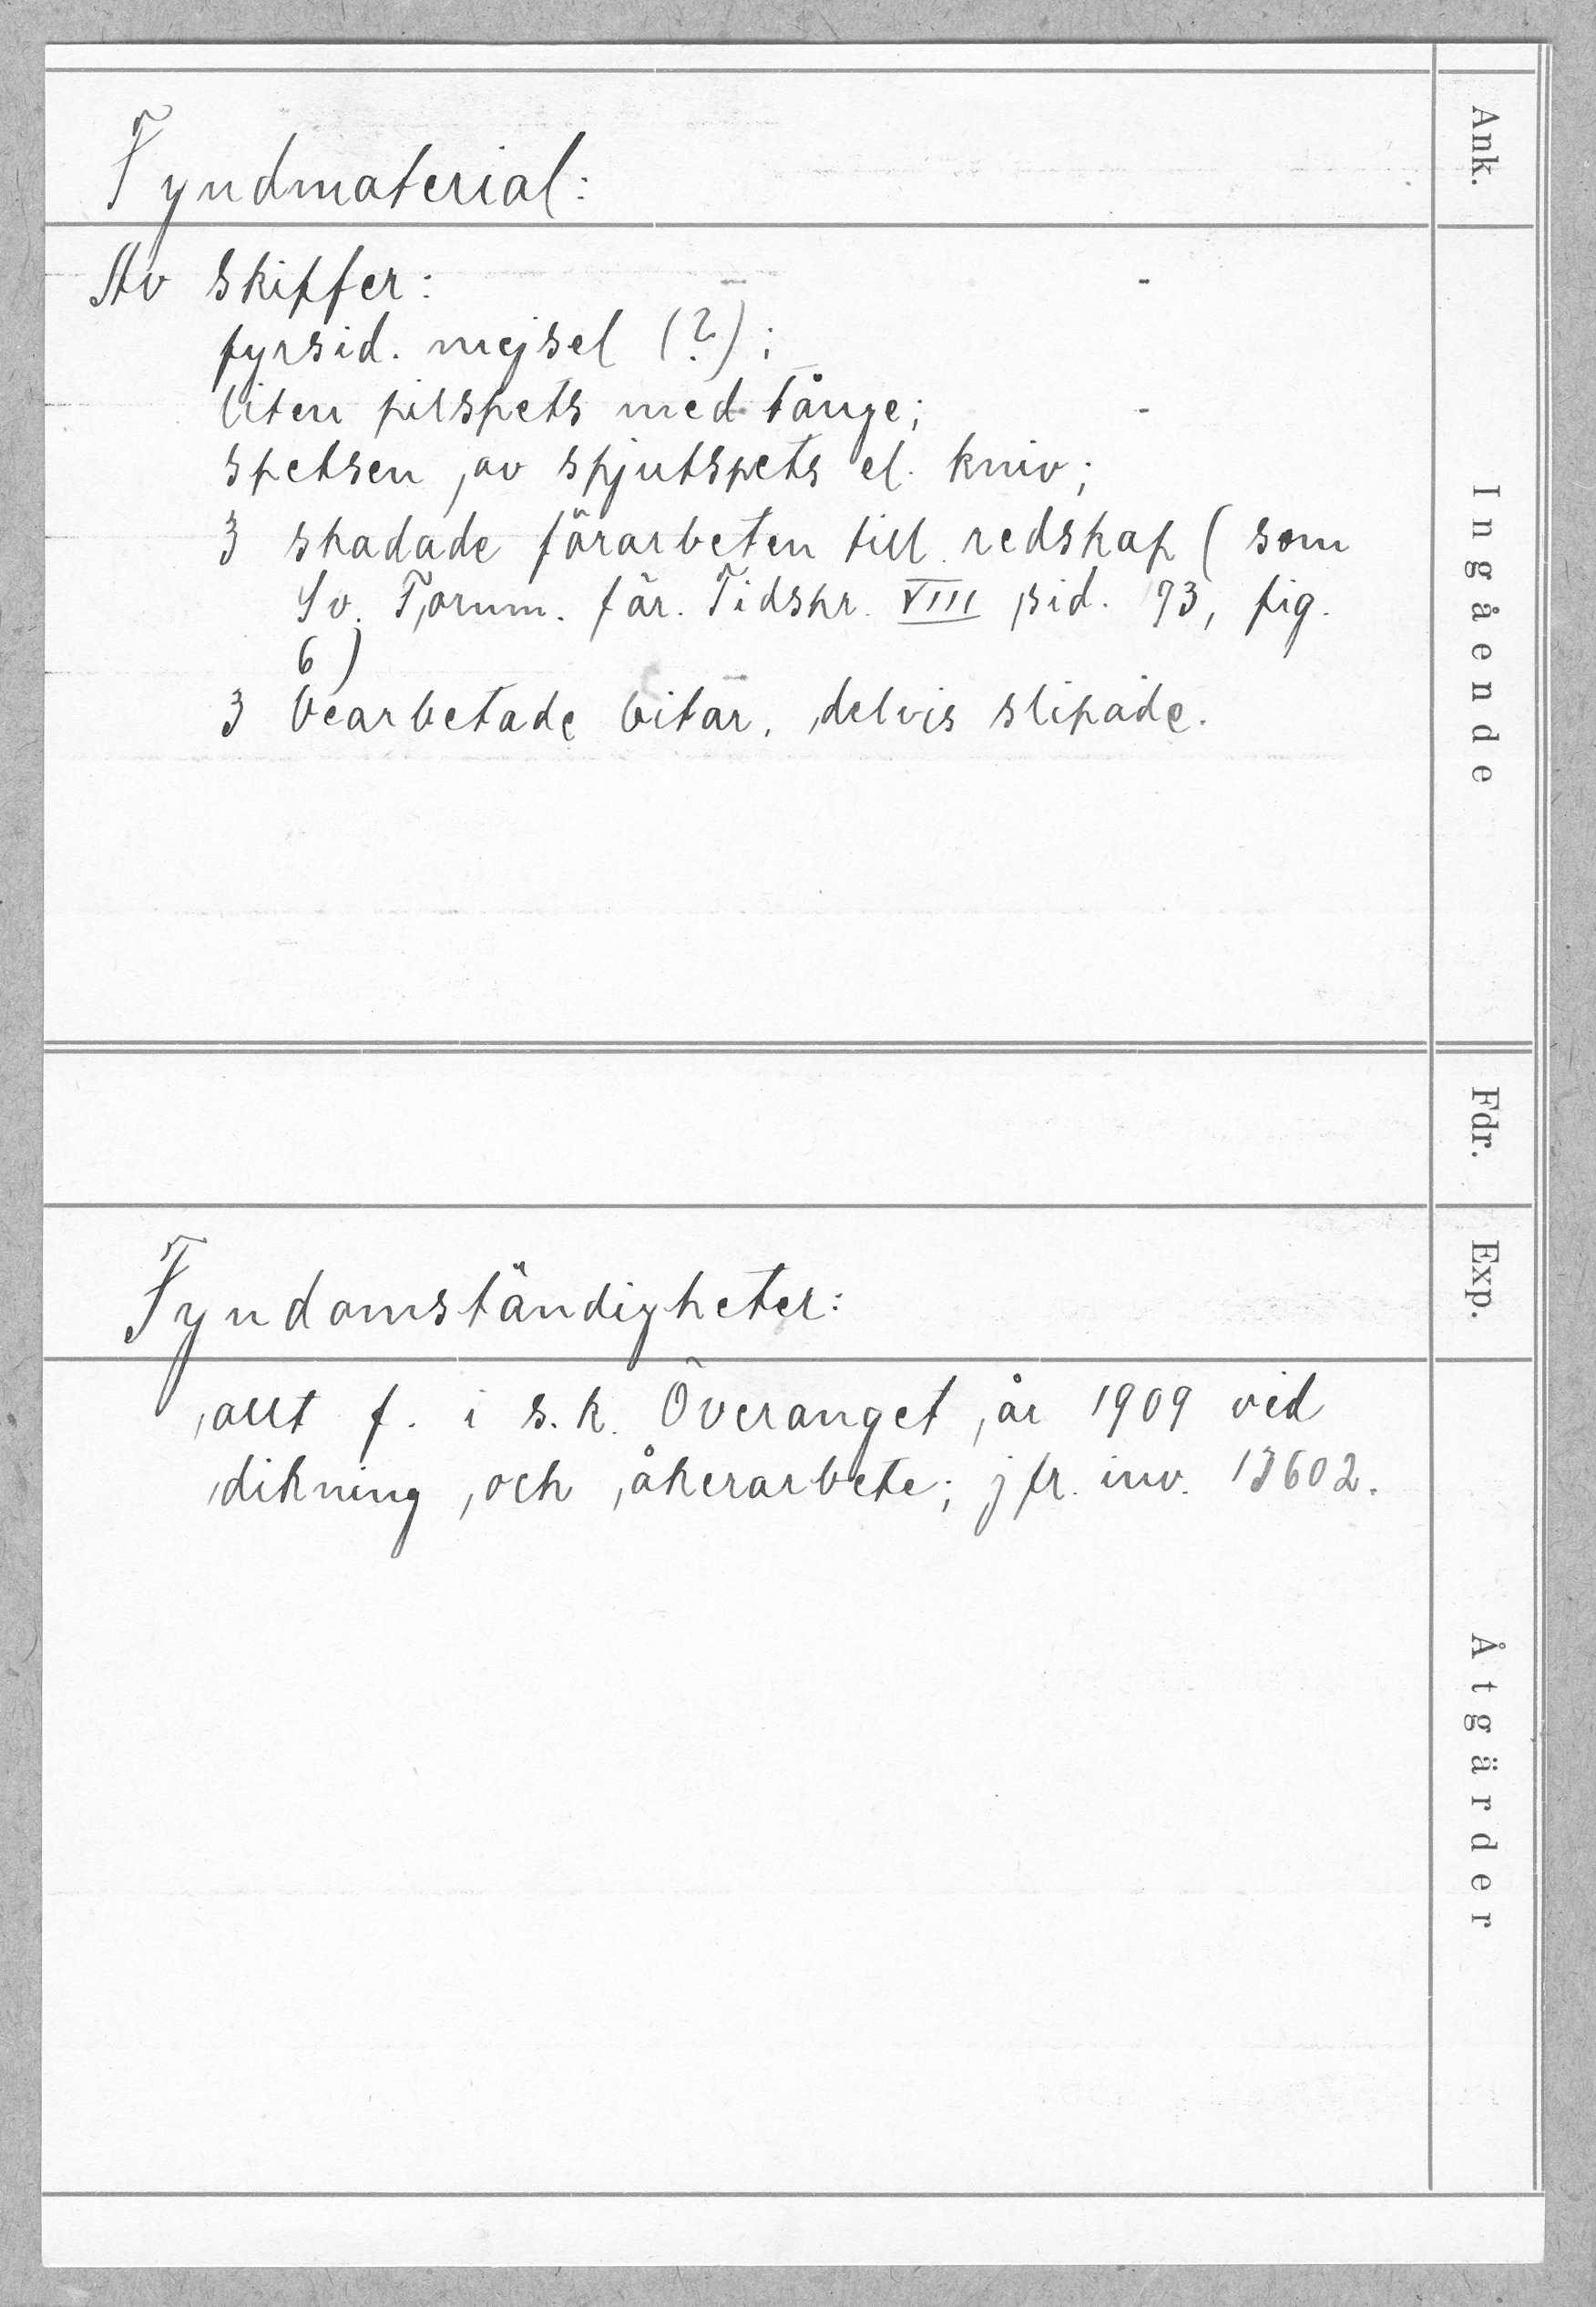 Fyndmaterial:
Av skiffer:
fyrsid. mejsel (?);
liten pilspets med tånge;
spetsen av spjutspets el. kniv;
3 skadade förarbeten till redskap (som
Sv. Fornm. för. Tidskr. VIII sid. 93, fig.
6)
3 bearbetade bitar, delvis slipade.
Fyndomständigheter:
allt f. i s.k. Överänget år 1909 vid
dikning och åkerarbete; jfr. inv. 13602.
Ank.
Ingående
Fdr.
Exp.
Åtgärder